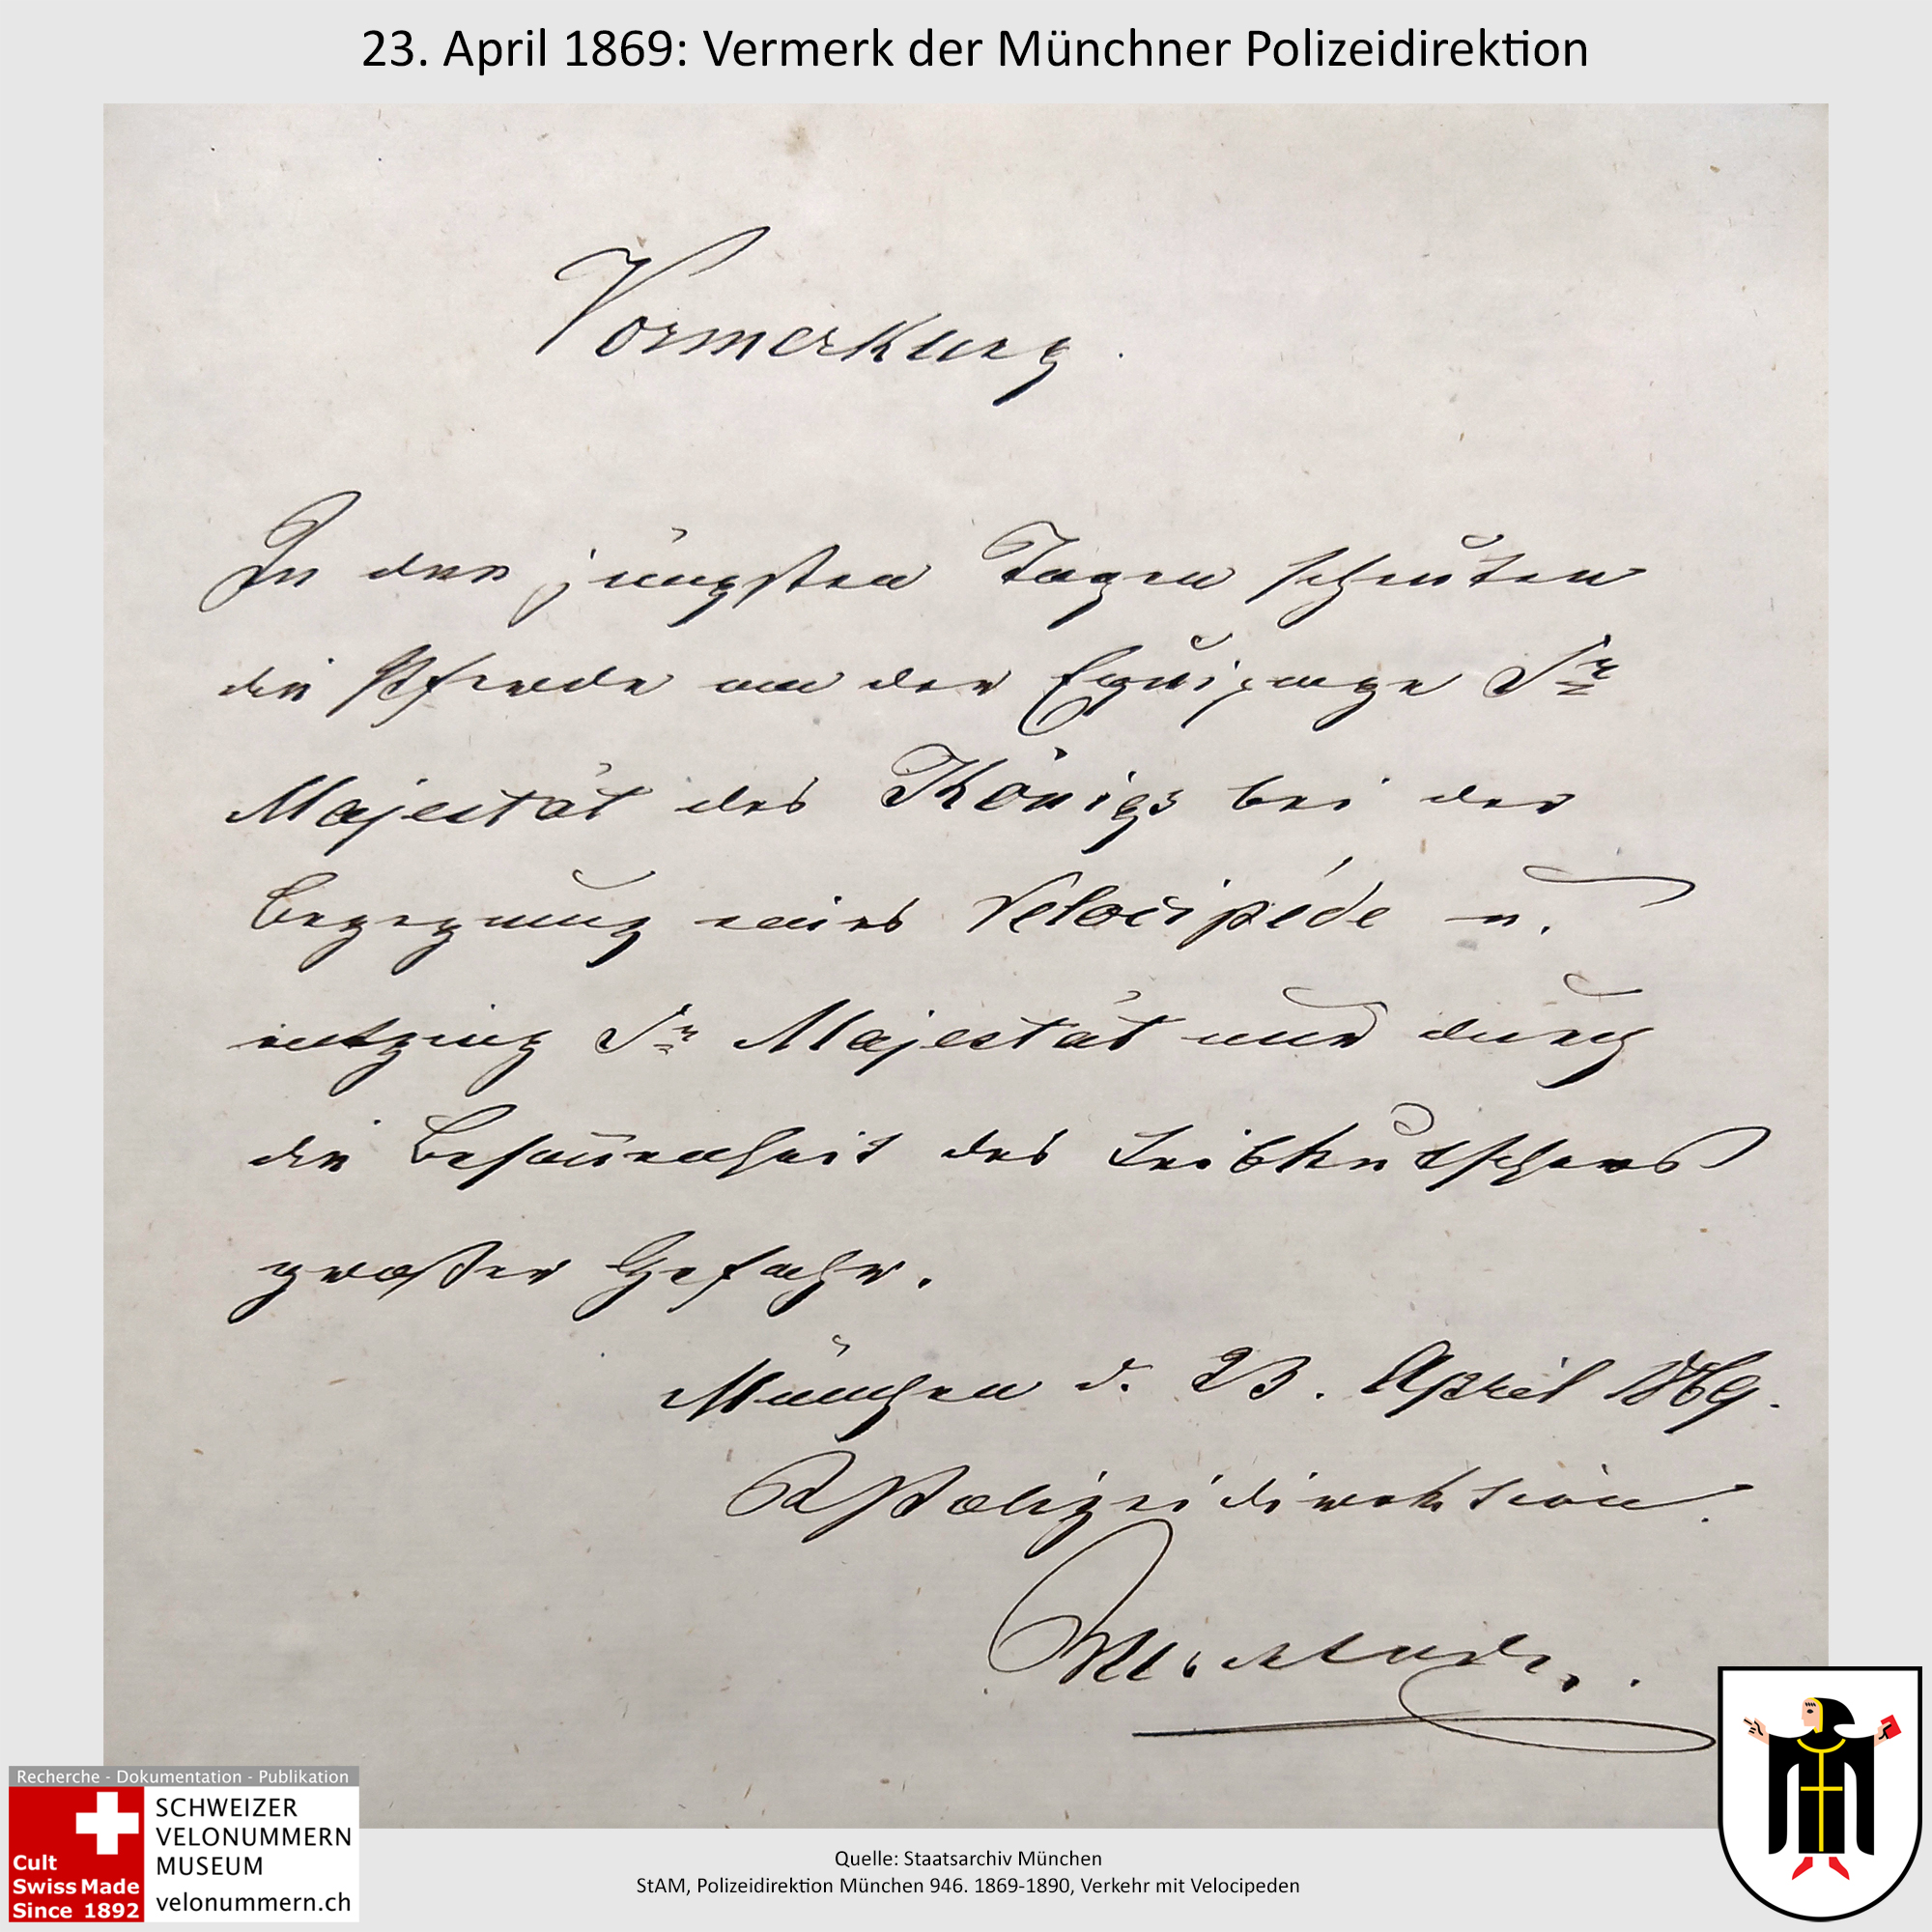 23. April 1869: Vermerk der Münchner Polizeidirektion
Vormerkung.
In den jüngsten Tagen scheuten
die Pferde an der Equipage Sr
Majestät des Königs bei der
Begegnung eines Velocipéde u.
entging Sr Majestät nur durch
die Besonnenheit des Leibkutschers
großer Gefahr.
München d. 23. April 1869.
Polizeidirektion.
Recherche - Dokumentation - Publikation
SCHWEIZER
VELONUMMERN
MUSEUM
velonummern.ch
Cult
Swiss Made
Since 1892
Quelle: Staatsarchiv München
StAM, Polizeidirektion München 946. 1869-1890, Verkehr mit Velocipeden